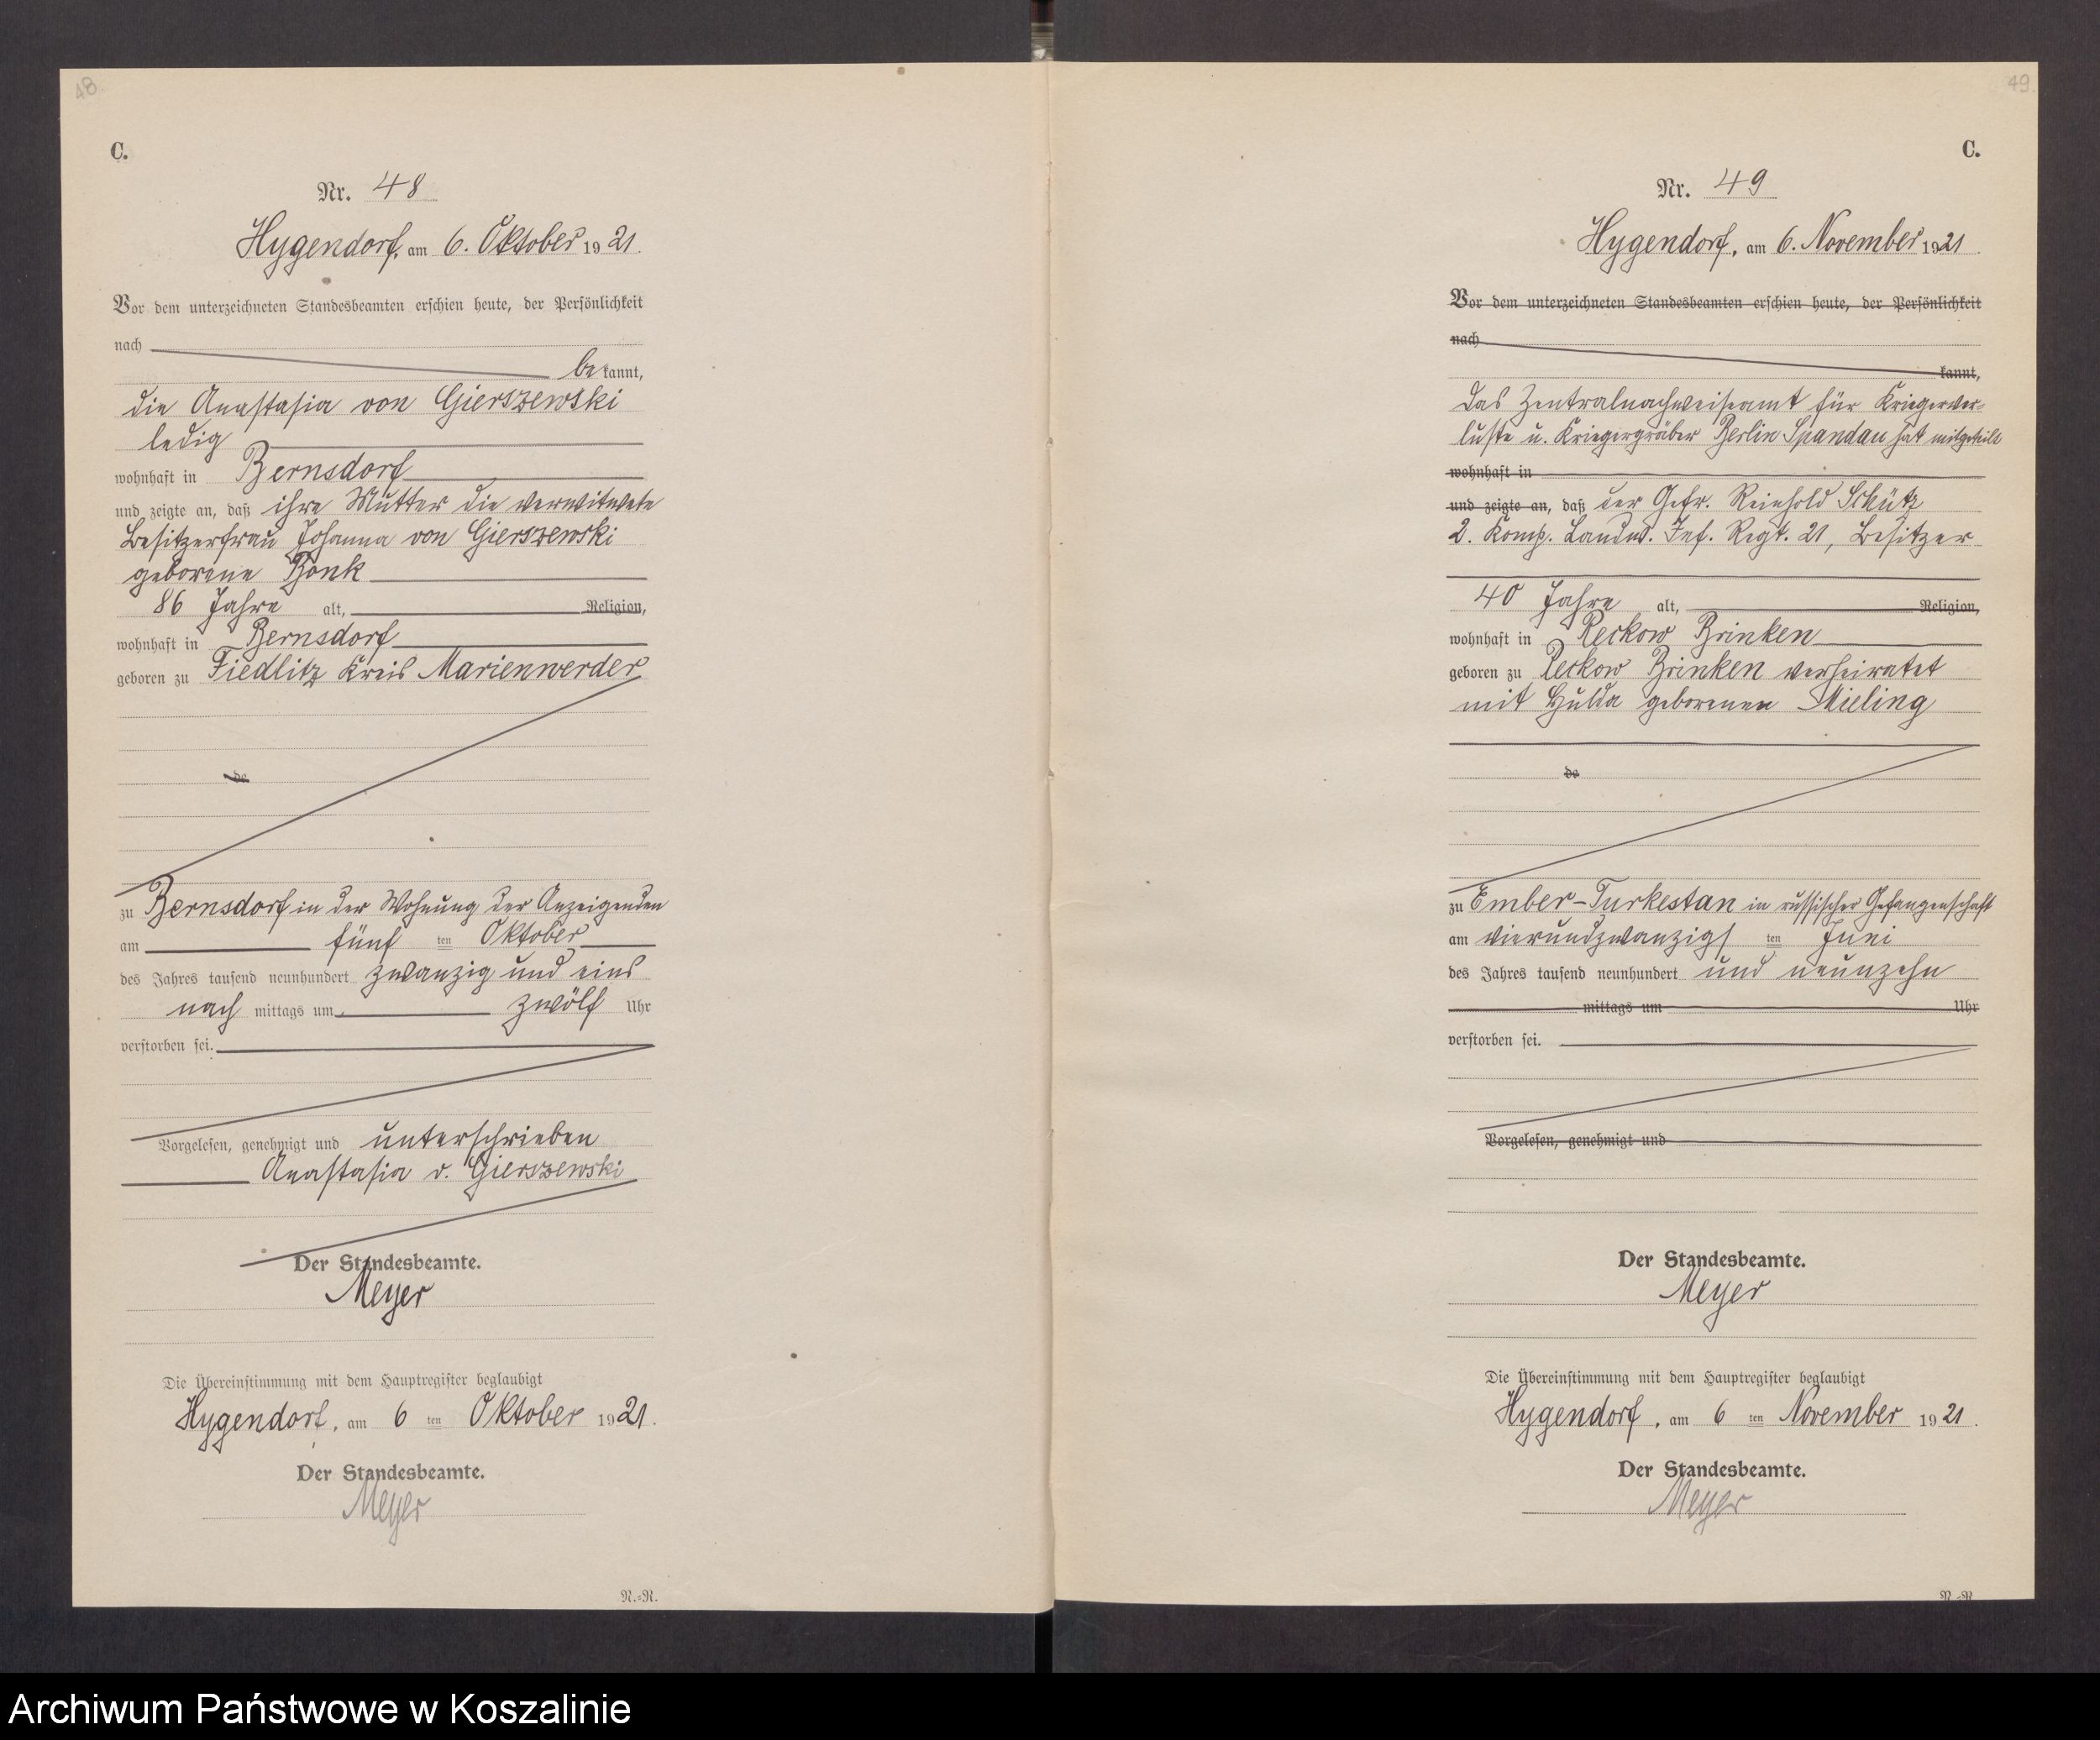 48
C.
Nr. 48
Hygendorf, am 6. Oktober 1921.
Vor dem unterzeichneten Standesbeamten erschien heute, der Persönlichkeit
nach
bekannt,
die Anastasia von Gierszewski
ledig
wohnhaft in Bernsdorf
und zeigte an, daß ihre Mutter die verwitwete
Besitzerfrau Johanna von Gierszewski
geborene Bonk
86 Jahre alt, Religion,
wohnhaft in Bernsdorf
geboren zu Fiedlitz Kreis Marienwerder
de
zu Bernsdorf in der Wohnung der Anzeigenden
am fünf ten Oktober
des Jahres tausend neunhundert zwanzig und eins
nach mittags um zwölf Uhr
verstorben sei.
Vorgelesen, genehmigt und unterschrieben
Anastasia v. Gierszewski
Der Standesbeamte.
Meyer
Die Übereinstimmung mit dem Hauptregister beglaubigt
Hygendorf, am 6 ten Oktober 1921.
Der Standesbeamte.
Meyer
N.=N.
49.
C.
Nr. 49
Hygendorf, am 6. November 1921.
Vor dem unterzeichneten Standesbeamten erschien heute, der Persönlichkeit
nach
kannt,
Das Zentralnachweiseamt für Kriegerver-
luste u. Kriegergräber Berlin Spandau hat mitgeteilt
wohnhaft in
und zeigte an, daß der Gefr. Reinhold Schütz
2. Komp. Landw. Inf. Regt. 21, Besitzer
40 Jahre alt, Religion,
wohnhaft in Reckow Brinken
geboren zu Reckow Brinken verheiratet
mit Hulda geborenen Mieling
de
zu Ember-Turkestan in russischer Gefangenschaft
am vierundzwanzigs ten Juni
des Jahres tausend neunhundert und neunzehn
mittags um Uhr
verstorben sei.
Vorgelesen, genehmigt und
Der Standesbeamte.
Meyer
Die Übereinstimmung mit dem Hauptregister beglaubigt
Hygendorf, am 6 ten November 1921.
Der Standesbeamte.
Meyer
N.=N.
Archiwum Państwowe w Koszalinie